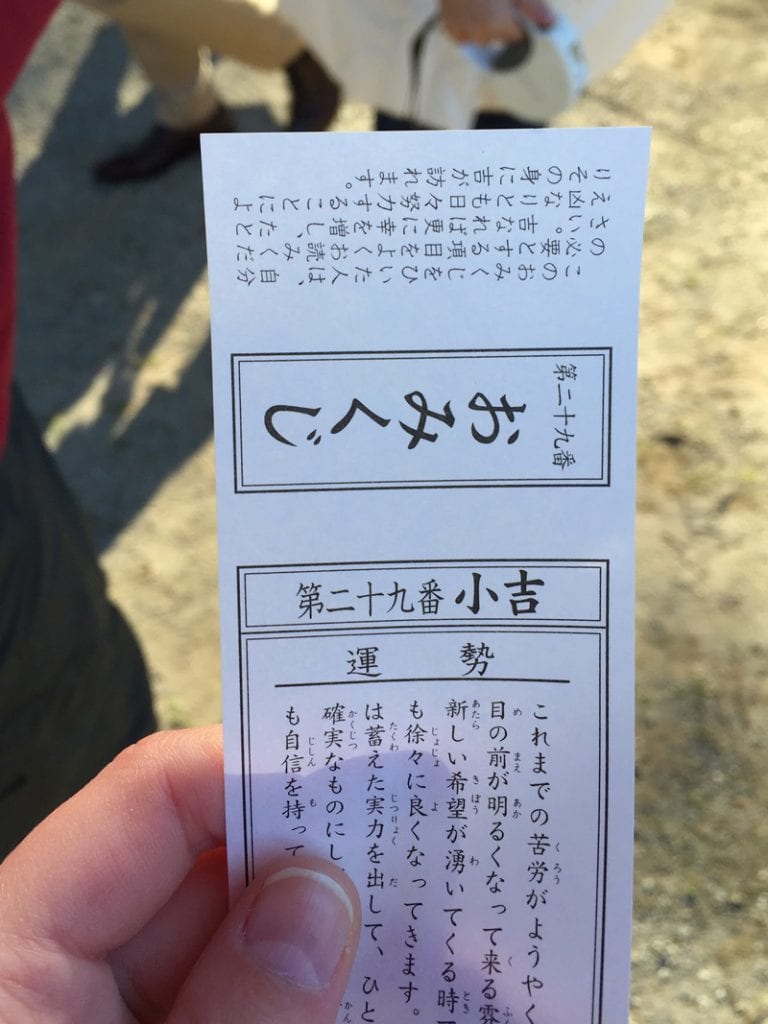 このおみくじをひいた人は、自分
の必要とする項目をよくお読みくだ
さい。吉なれば更に幸を増し、たと
え凶なりとも日々努力することによ
りその身に吉が訪れます。
第二十九番
おみくじ
第二十九番 小吉
運勢
これまでの苦労がようやく
目の前が明るくなって来る雰
新しい希望が湧いてくる時
も徐々に良くなってきます。
は蓄えた実力を出して、ひと
確実なものにし
も自信を持って